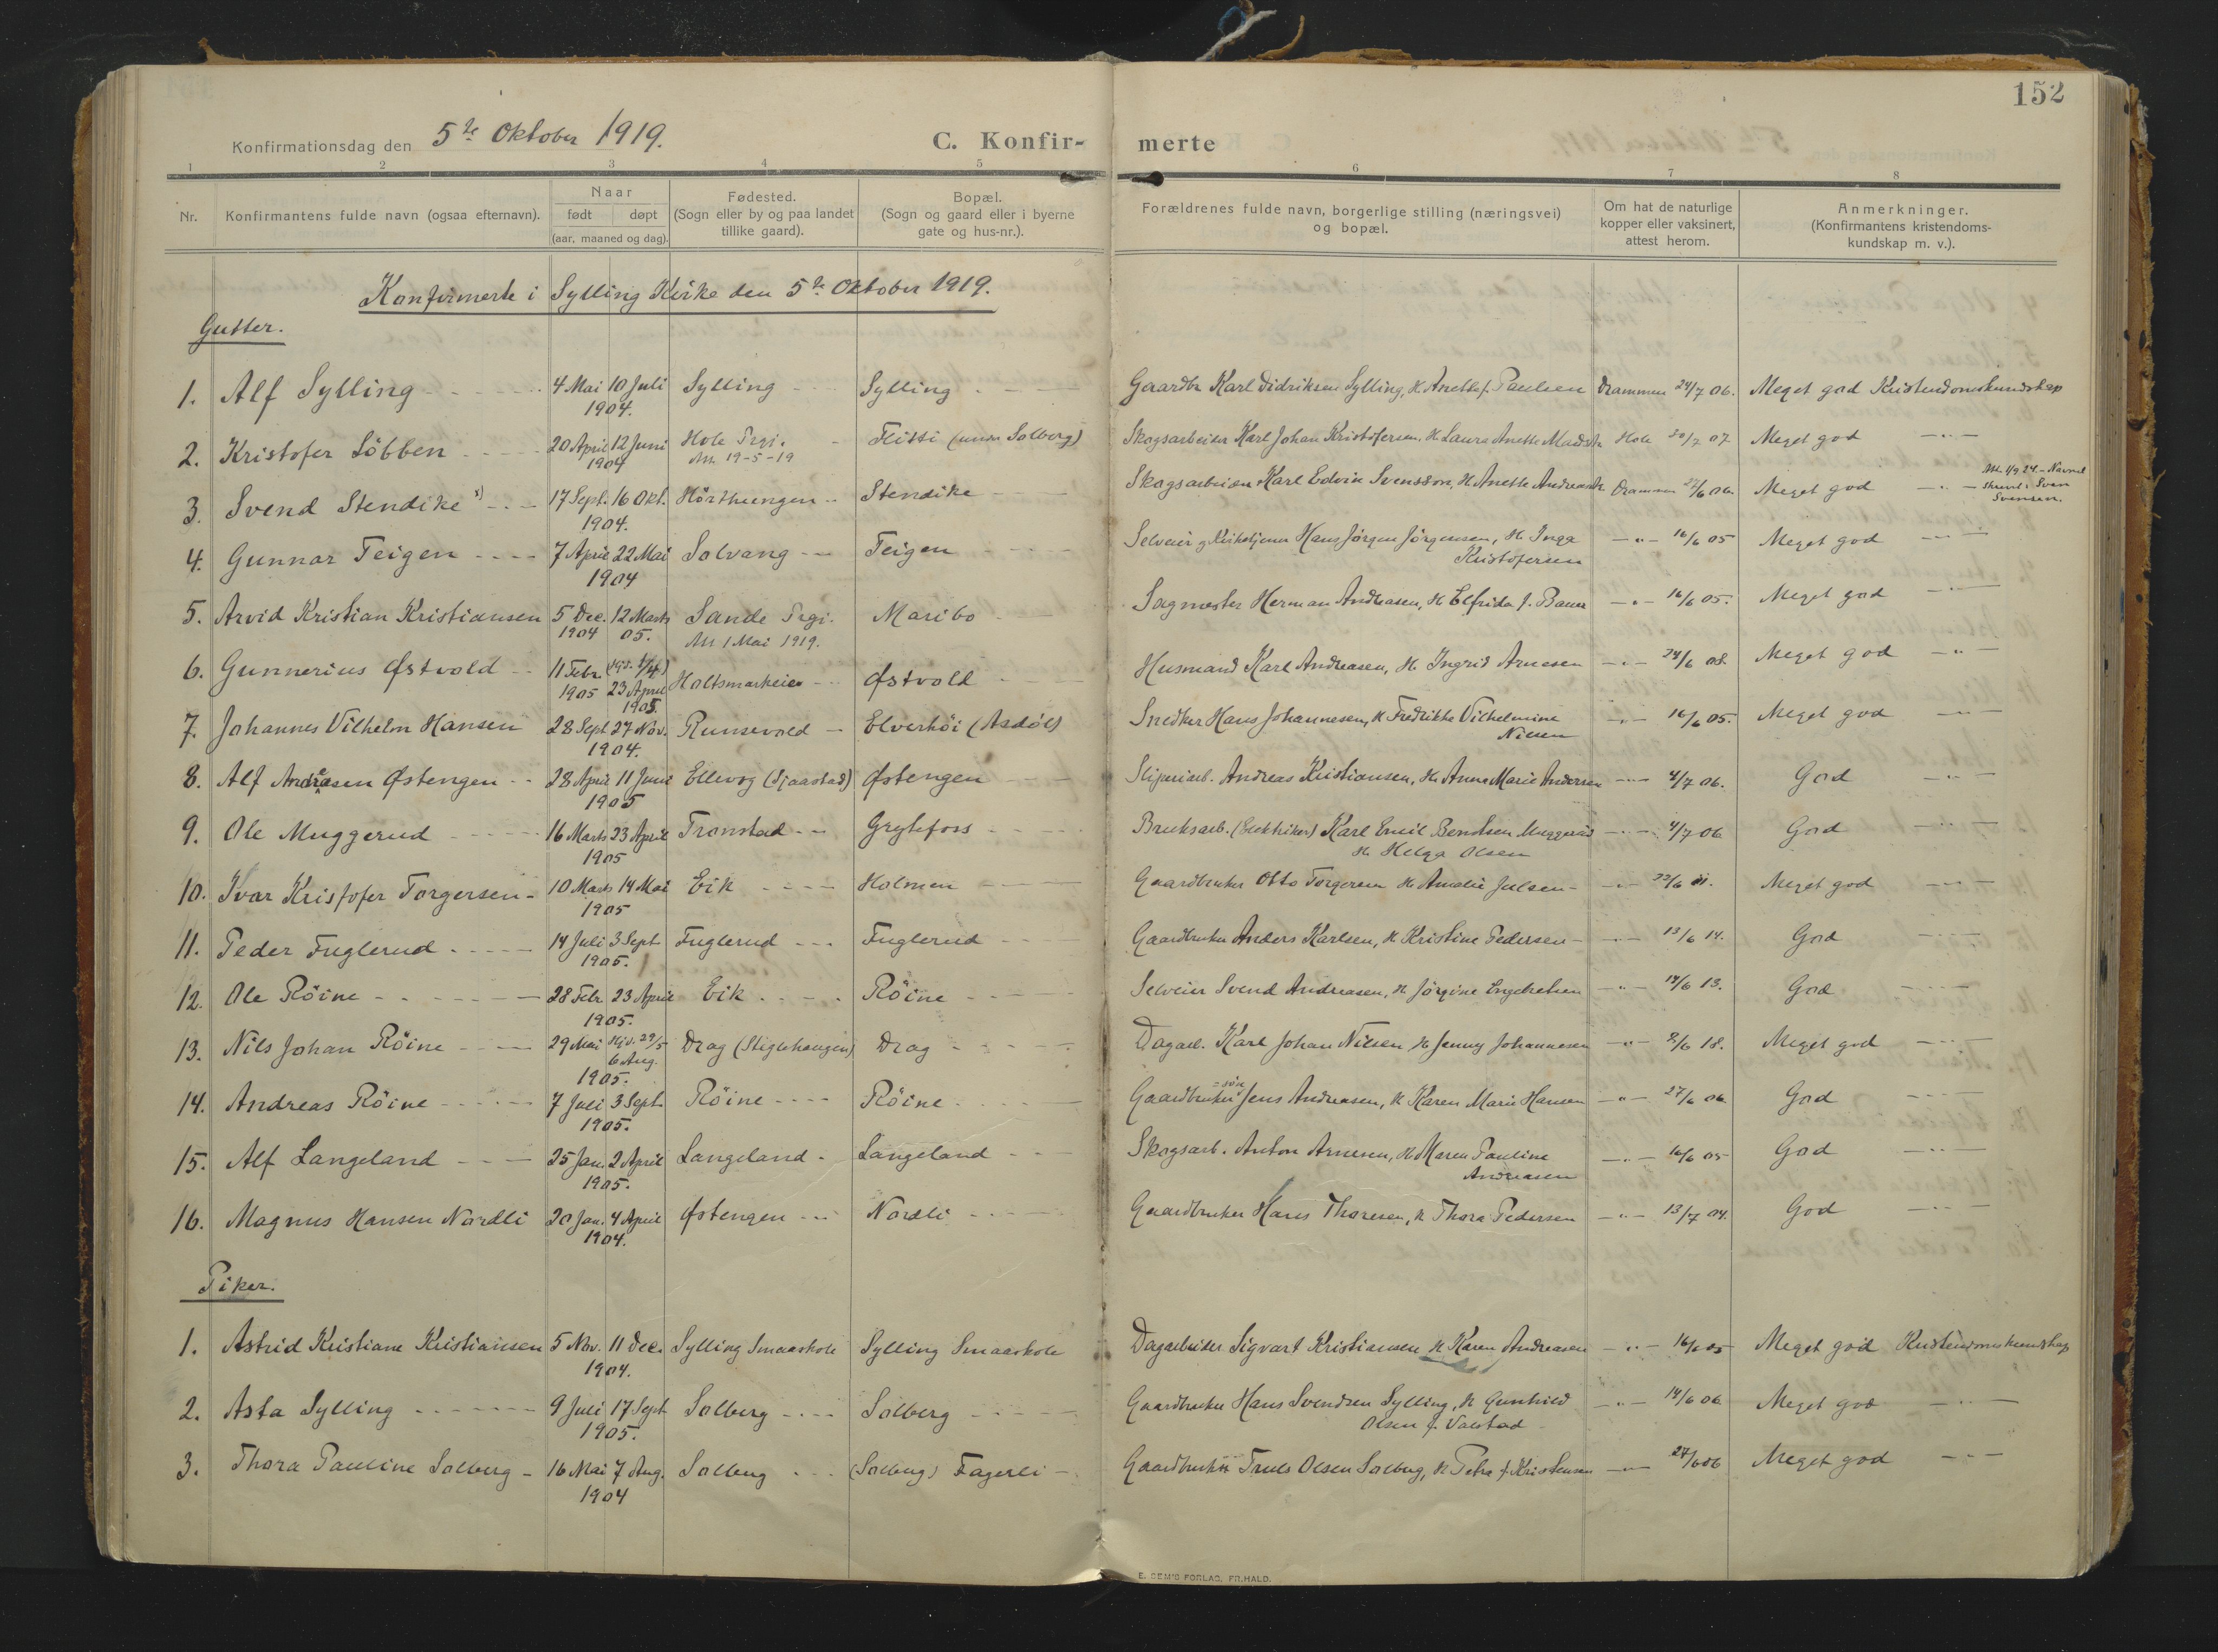 152
Konfirmationsdag den 5te Oktober 1919. C. Konfir- merte
1 2 3 4 5 6 7 8
Nr. Konfirmantens fulde navn (ogsaa efternavn). Naar født døpt (aar, maaned og dag). Fødested. (Sogn eller by og paa landet tillike gaard). Bopæl. (Sogn og gaard eller i byerne gate og hus-nr.). Forældrenes fulde navn, borgerlige stilling (næringsvei) og bopæl. Om hat de naturlige kopper eller vaksinert, attest herom. Anmerkninger. (Konfirmantens kristendoms- kundskap m. v.).
Konfirmerte i Sylling Kirke den 5te Oktober 1919.
Gutter.
1. Alf Sylling 4 Mai 10 Juli 1904. Sylling Sylling Gaardbr. Karl Didriksen Sylling, H. Anette f. Paulsen Drammen 24/7 06. Meget god Kristendomskundskap
2. Kristofer Löbben 20 April 12 Juni 1904 Hole Prgj. Att. 19-5-19 (under Solberg) Skogsarbeider Karl Johan Kristofersen, H. Laura Anette Hole 07 Meget god -"-
3. Svend Stendike 1) 17 Sept. 16 Okt. 1904. Stendike Skogsarbeider Karl Edvin Svensson, H. Anette Drammen 06. Meget god -"- Navnet Sven Svensen.
4. Gunnar Teigen 7 April 22 Mai 1904 Solvang Teigen Selveier og Kirketjener Hans Jørgen Jørgensen, H. Inga Kristofersen -"- 16/6 05 Meget god -"-
5. Arvid Kristian Kristiansen 5 Dec. 1904 12 Marts 05. Sande Prgj. Att 1 Mai 1919. Maribo Sagmester Herman Andreasen, H. Elfrida f. Bauer -"- 16/6 05. Meget god -"-
6. Gunnerius Østvold 11 Febr. 1905 23 April 1905. Østvold Husmand Karl Andreasen, H. Ingrid Arnesen -"- 24/6 08. Meget god -"-
7. Johannes Vilhelm Hansen 28 Sept 27 Nov. 1904. Runsevold Elverhöi (Asdöl) Snedker Hans Johannesen, H. Fredrikke Vilhelmine Nilsen -"- 16/6 05. Meget god -"-
8. Alf Andreasen Østengen 28 April 11 Juni 1905 (Sjaastad) Østengen Sliperiarb. Andreas Kristiansen, H. Anne Marie Andersen -"- 4/7 06. God -"-
9. Ole Muggerud 16 Marts 23 April 1905 Tronstad Grytefoss Bruksarb. (Elektriker) Karl Emil Bendtsen Muggerud H. Helga Olsen -"- 4/7 06 God -"-
10. Ivar Kristofer Torgersen 10 Marts 14 Mai 1905 Eik Holmen Gaardbruker Otto Torgersen H. Amalie Julsen -"- 22/6 11. Meget god -"-
11. Peder Fuglerud 14 Juli 3 Sept. 1905. Fuglerud Fuglerud Gaardbruker Anders Karlsen, H. Kristine Pedersen -"- 13/6 14. God -"-
12. Ole Röine 28 Febr. 23 April 1905. Eik Röine Selveier Svend Andreasen, H. Jörgine Engebretsen -"- 14/6 13. God -"-
13. Nils Johan Röine 29 Mai Hjd. 29/5 6 Aug. 1905. Drag (Stiglehaugen) Drag Dagarb. Karl Johan Nilsen H. Jenny Johannesen -"- 8/6 18. Meget god -"-
14. Andreas Röine 7 Juli 3 Sept. 1905. Röine Röine Gaardbruker=søn Jens Andreasen, H. Karen Marie Hansen -"- 27/6 06 God -"-
15. Alf Langeland 25 Jan. 2 April 1905. Langeland Langeland Skogsarb. Anton Arnesen, H. Maren Pauline Andreasen -"- 16/6 05 God -"-
16. Magnus Hansen Nordli 20 Jan. 4 April 1904. Østengen Nordli Gaardbruker Hans Thoresen, H. Thora Pedersen -"- 13/7 04. God -"-
Piker.
1. Astrid Kristiane Kristiansen 5 Nov. 11 Dec. 1904. Sylling Smaaskole Sylling Smaaskole Dagarbeider Sigvart Kristiansen H. Karen Andreasen -"- 16/6 05 Meget god Kristendomskundskap
2. Asta Sylling 9 Juli 17 Sept 1905. Solberg Solberg Gaardbruker Hans Svendsen Sylling, H. Gunhild Olsen f. Valstad -"- 14/6 06 Meget god -"-
3. Thora Pauline Solberg 16 Mai 7 Aug. 1904 Solberg (Solberg) Fagerli Gaardbruker Truls Olsen Solberg, H. Petra f. Kristensen -"- 27/6 06 Meget god -"-
E. SEM'S FORLAG, FR.HALD.